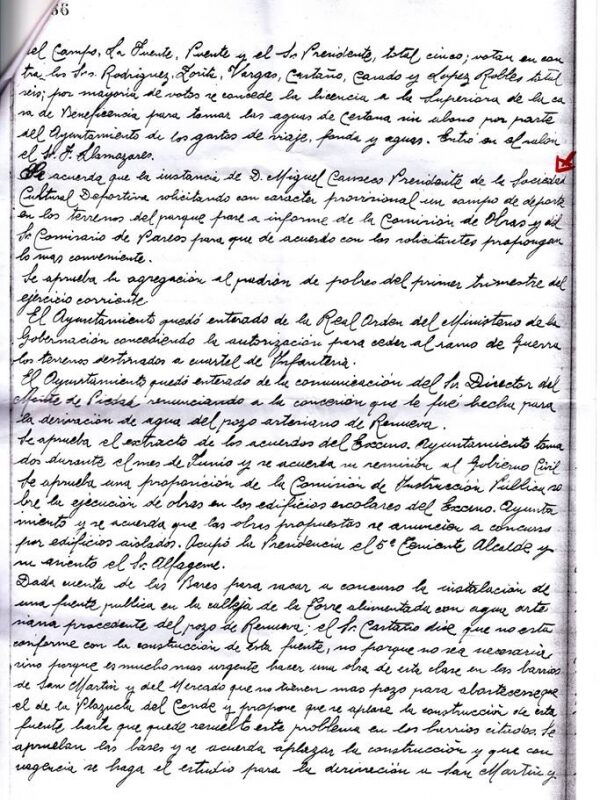 66
del Campo, La Fuente, Puente y el Sr Presidente, total cinco; votan en con
tra, los Srs. Rodriguez, Zorita, Vargas, Castaño, Casado y Lopez Robles total
seis; por mayoria de votos se concede la licencia a la Superiora de la ca
sa de Beneficencia para tomar las aguas de Cestona sin abono por parte
del Ayuntamiento de los gastos de viaje, fonda y aguas. Entró en el salon
el Sr. F. Llamazares.
Se acuerda que la instancia de D. Miguel Canseco Presidente de la Sociedad
Cultural Deportiva solicitando con caracter provisional un campo de deporte
en los terrenos del parque pase a informe de la Comisión de Obras y del
Sr Comisario de Paseos para que de acuerdo con los solicitantes propongan
lo mas conveniente.
Se aprueba la agregación al padrón de pobres del primer trimestre del
ejercicio corriente
El Ayuntamiento quedó enterado de la Real Orden del Ministerio de la
Gobernación concediendo la autorización para ceder al ramo de Guerra
los terrenos destinados a cuartel de Infanteria.
El Ayuntamiento quedó enterado de la comunicación del Sr Director del
Monte de Piedad renunciando a la concesión que le fué hecha para
la derivación de agua del pozo artesiano de Renueva.
Se aprueba el extracto de los acuerdos del Excmo. Ayuntamiento toma
dos durante el mes de Junio y se acuerda su remisión al Gobierno Civil
Se aprueba una proposición de la Comisión de Instrucción Pública so
bre la ejecución de obras en los edificios escolares del Excmo. Ayunta
miento y se acuerda que las obras propuestas se anuncien a concurso
por edificios aislados. Ocupó la Presidencia el 5º Teniente Alcalde y
su asiento el Sr. Alfageme.
Dada cuenta de las Bases para sacar a concurso la instalación de
una fuente publica en la calleja de la Torre alimentada con agua arte
siana procedente del pozo de Renueva; el Sr. Castaño dise que no está
conforme con la construcción de esta fuente, no porque no sea necesaria
sino porque es mucho mas urgente hacer una obra de esta clase en los barrios
de San Martin y del Mercado que no tienen mas pozo para abastecerse que
el de la Plazuela del Conde y propone que se aplace la construcción de esta
fuente hasta que quede resuelto este problema en los barrios citados. Se
aprueban las bases y se acuerda aplazar la construcción y que con
urgencia se haga el estudio para la derivación a San Martin y